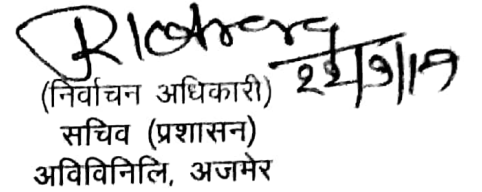 22/9/17
(निर्वाचन अधिकारी)
सचिव (प्रशासन)
अविविनिलि, अजमेर